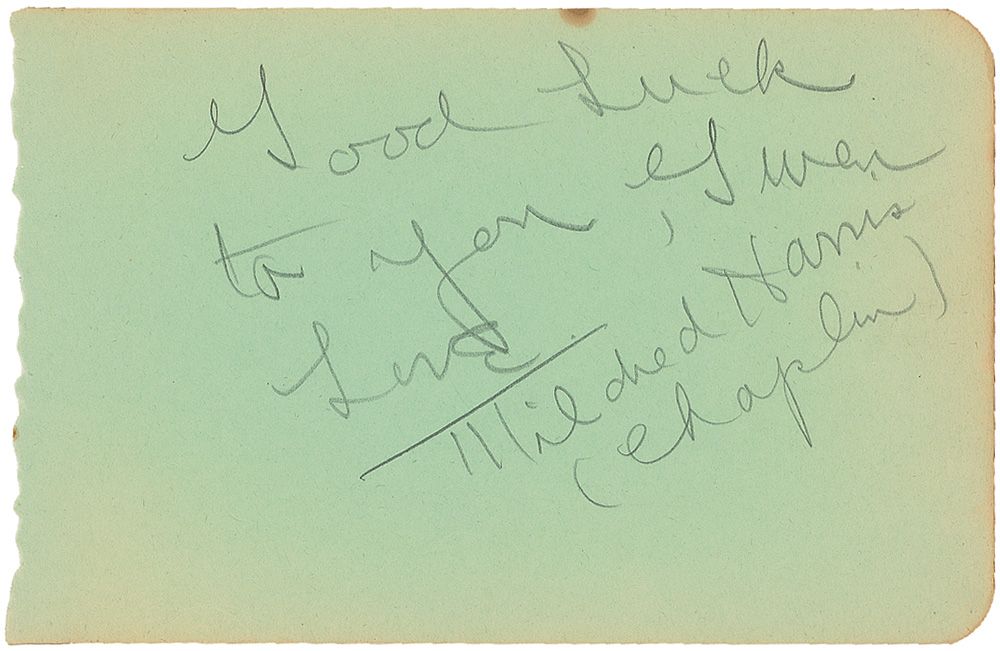 Good Luck
to you, Gwen
Love
Mildred Harris
(Chaplin)